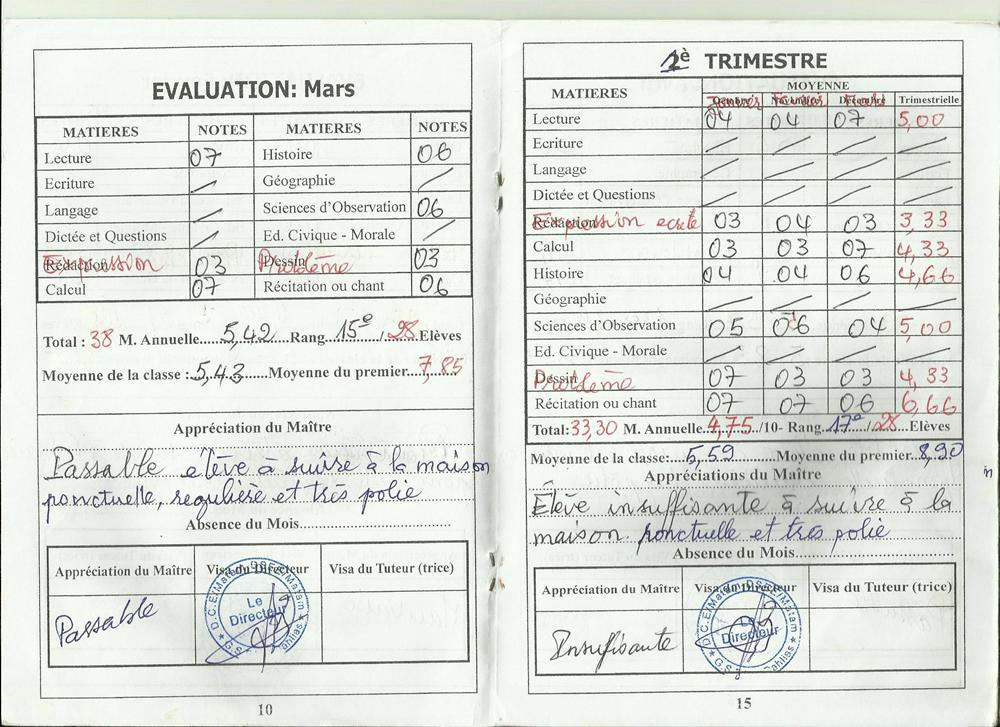 EVALUATION: Mars
MATIERES NOTES MATIERES NOTES
Lecture 07 Histoire 06
Ecriture / Géographie /
Langage / Sciences d'Observation 06
Dictée et Questions / Ed. Civique - Morale /
Rédaction Expression 03 Dessin Problème 03
Calcul 07 Récitation ou chant 06
Total : 38 M. Annuelle.....5,42...Rang...15e/28 Elèves
Moyenne de la classe :..5,43.......Moyenne du premier....7,85
Appréciation du Maître
Passable elève à suivre à la maison
ponctuelle, regulière et très polie
Absence du Mois
Appréciation du Maître Visa du Directeur Visa du Tuteur (trice)
Passable
Le
Directeur
10
2è TRIMESTRE
MATIERES MOYENNE
Trimestrielle
Lecture 04 04 07 5,00
Ecriture / / / /
Langage / / / /
Dictée et Questions / / / /
Rédaction Expression ecrite 03 04 03 3,33
Calcul 03 03 07 4,33
Histoire 04 04 06 4,66
Géographie / / / /
Sciences d'Observation 05 06 04 5,00
Ed. Civique - Morale / / / /
Dessin Problème 07 03 03 4,33
Récitation ou chant 07 07 06 6,66
Total: 33,30 M. Annuelle 4,75 /10- Rang 17e /28 Elèves
Moyenne de la classe: 5,59 Moyenne du premier. 8,90
Appréciations du Maître
Élève insuffisante à suivre à la
maison ponctuelle et très polie
Absence du Mois
Appréciation du Maître Visa du Directeur Visa du Tuteur (trice)
Insuffisante
Directeur
15